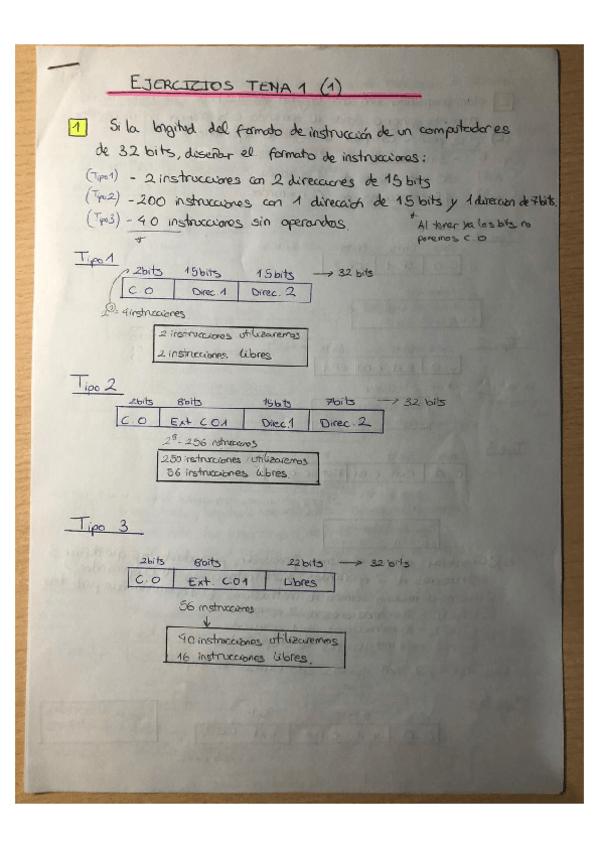 EJERCICIOS TEMA 1 (1)
1 Si la longitud del formato de instrucción de un computador es
de 32 bits, diseñar el formato de instrucciones:
(Tipo1) - 2 instrucciones con 2 direcciones de 15 bits
(Tipo2) - 200 instrucciones con 1 dirección de 15 bits y 1 direccion de 7 bits.
(Tipo3) - 40 instrucciones sin operandos.
* Al tener ya los bits no
ponemos C.O
*
Tipo 1
2bits 15bits 15bits → 32 bits
C.O Direc.1 Direc.2
2² = 4 instrucciones
2 instrucciones utilizaremos
2 instrucciones libres
Tipo 2
2bits 8bits 15bits 7bits → 32 bits
C.O Ext CO1 Direc.1 Direc.2
2⁸ = 256 instrucciones
200 instrucciones utilizaremos
56 instrucciones libres.
Tipo 3
2bits 8bits 22bits → 32 bits
C.O Ext. CO1 Libres
56 instrucciones
↓
40 instrucciones utilizaremos
16 instrucciones libres.